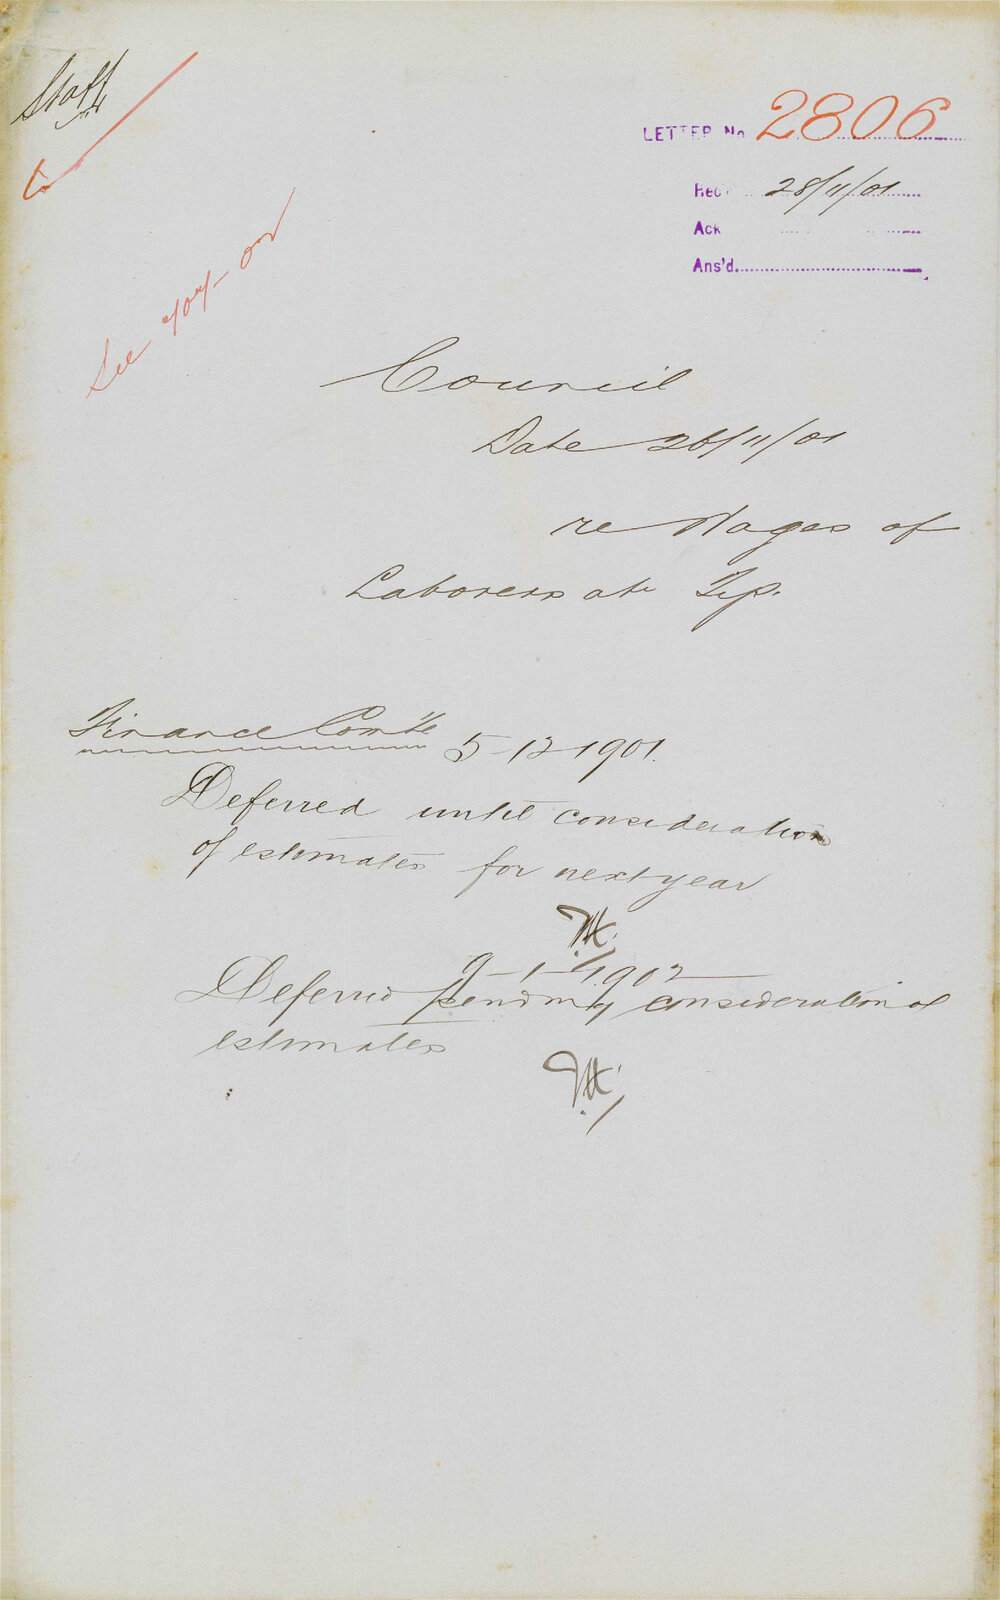 Staff
LETTER No 2806
Rec 28/11/01
Ack
Ans'd
See 404-02
Council
Date 26/11/01
re Wages of
Laborers at Tip.
Finance Comtte 5-12-1901.
Deferred until consideration
of estimates for next year
9-1-1902
Deferred pending consideration of
estimates